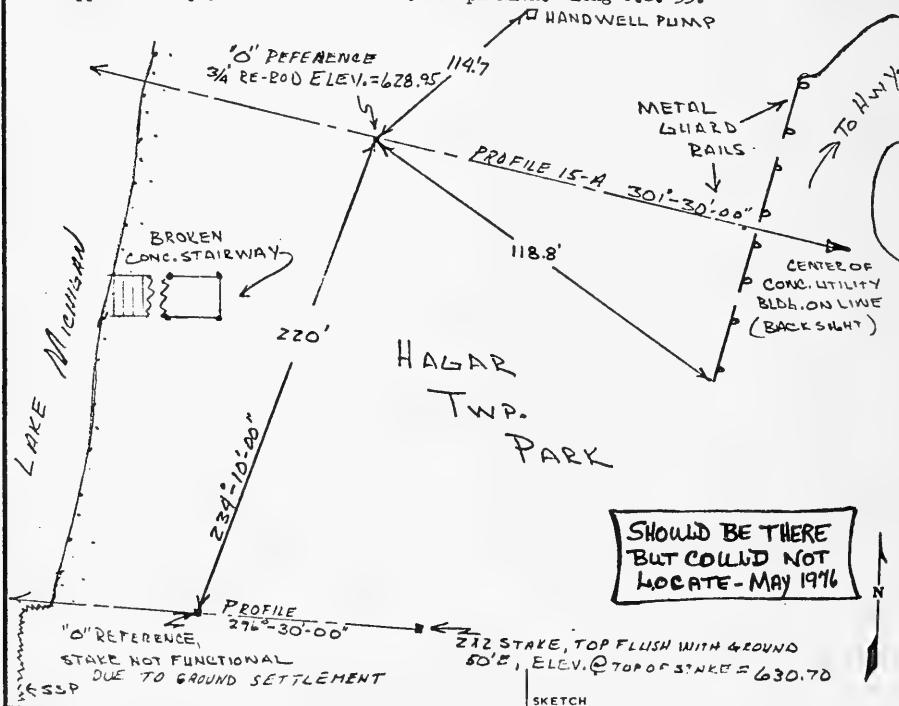 HANDWELL PUMP
"O" REFERENCE
3/4 RE-ROD ELEV. = 628.95
114.7
METAL
GUARD
RAILS
TO HWY.
PROFILE 15-A
301°-30'-00"
BROKEN
CONC. STAIRWAY
118.8'
CENTER OF
CONC. UTILITY
BLDG. ON LINE
(BACKSIGHT)
LAKE MICHIGAN
220'
HAGAR
TWP.
PARK
234°-10'-00"
SHOULD BE THERE
BUT COULD NOT
LOCATE - MAY 1976
N
PROFILE
296°-30'-00"
"O" REFERENCE,
STAKE NOT FUNCTIONAL
DUE TO GROUND SETTLEMENT
2X2 STAKE, TOP FLUSH WITH GROUND
50'E, ELEV. @ TOP OF STAKE = 630.70
SSP
SKETCH